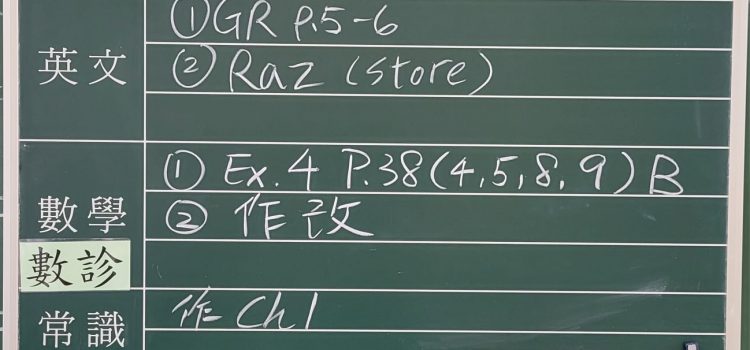 英文
①GR P.5-6
②Raz (store)
數學
① Ex.4 P.38(4,5,8,9)B
② 作改
數診
常識
作 Ch1